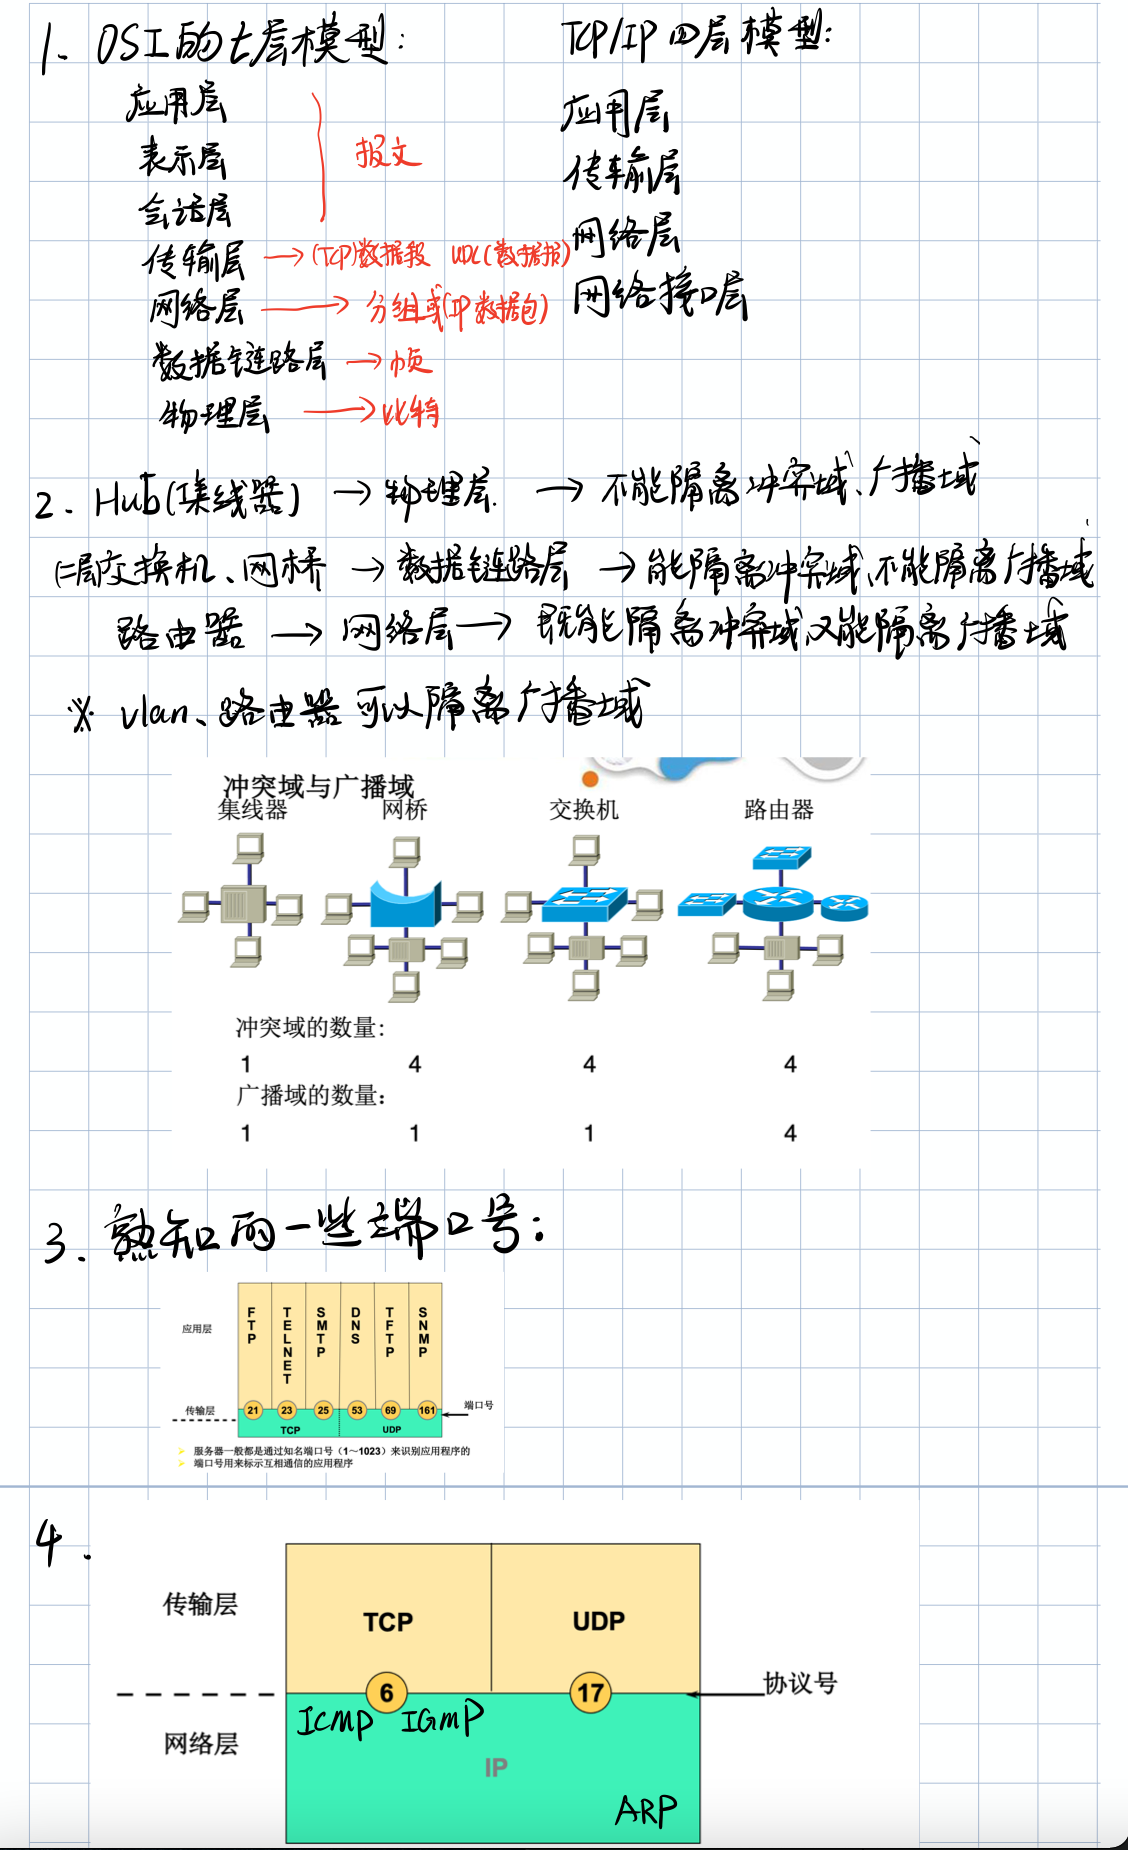 1. OSI的七层模型：
TCP/IP四层模型：
应用层
表示层
会话层
报文
传输层 →(TCP)数据段 UDC(数据报)
网络层 → 分组或(IP数据包)
数据链路层 → 帧
物理层 → 比特
应用层
传输层
网络层
网络接口层
2. Hub(集线器) → 物理层. → 不能隔离冲突域、广播域
二层交换机、网桥 → 数据链路层 → 能隔离冲突域,不能隔离广播域
路由器 → 网络层 → 既能隔离冲突域又能隔离广播域
※ vlan、路由器可以隔离广播域
冲突域与广播域
集线器 网桥 交换机 路由器
冲突域的数量:
1 4 4 4
广播域的数量:
1 1 1 4
3. 熟知的一些端口号：
应用层
FTP TELNET SMTP DNS TFTP SNMP
传输层 21 23 25 53 69 161 端口号
TCP UDP
服务器一般都是通过知名端口号（1～1023）来识别应用程序的
端口号用来标示互相通信的应用程序
4.
传输层 TCP UDP
6 17 协议号
ICMP IGMP
网络层 IP
ARP